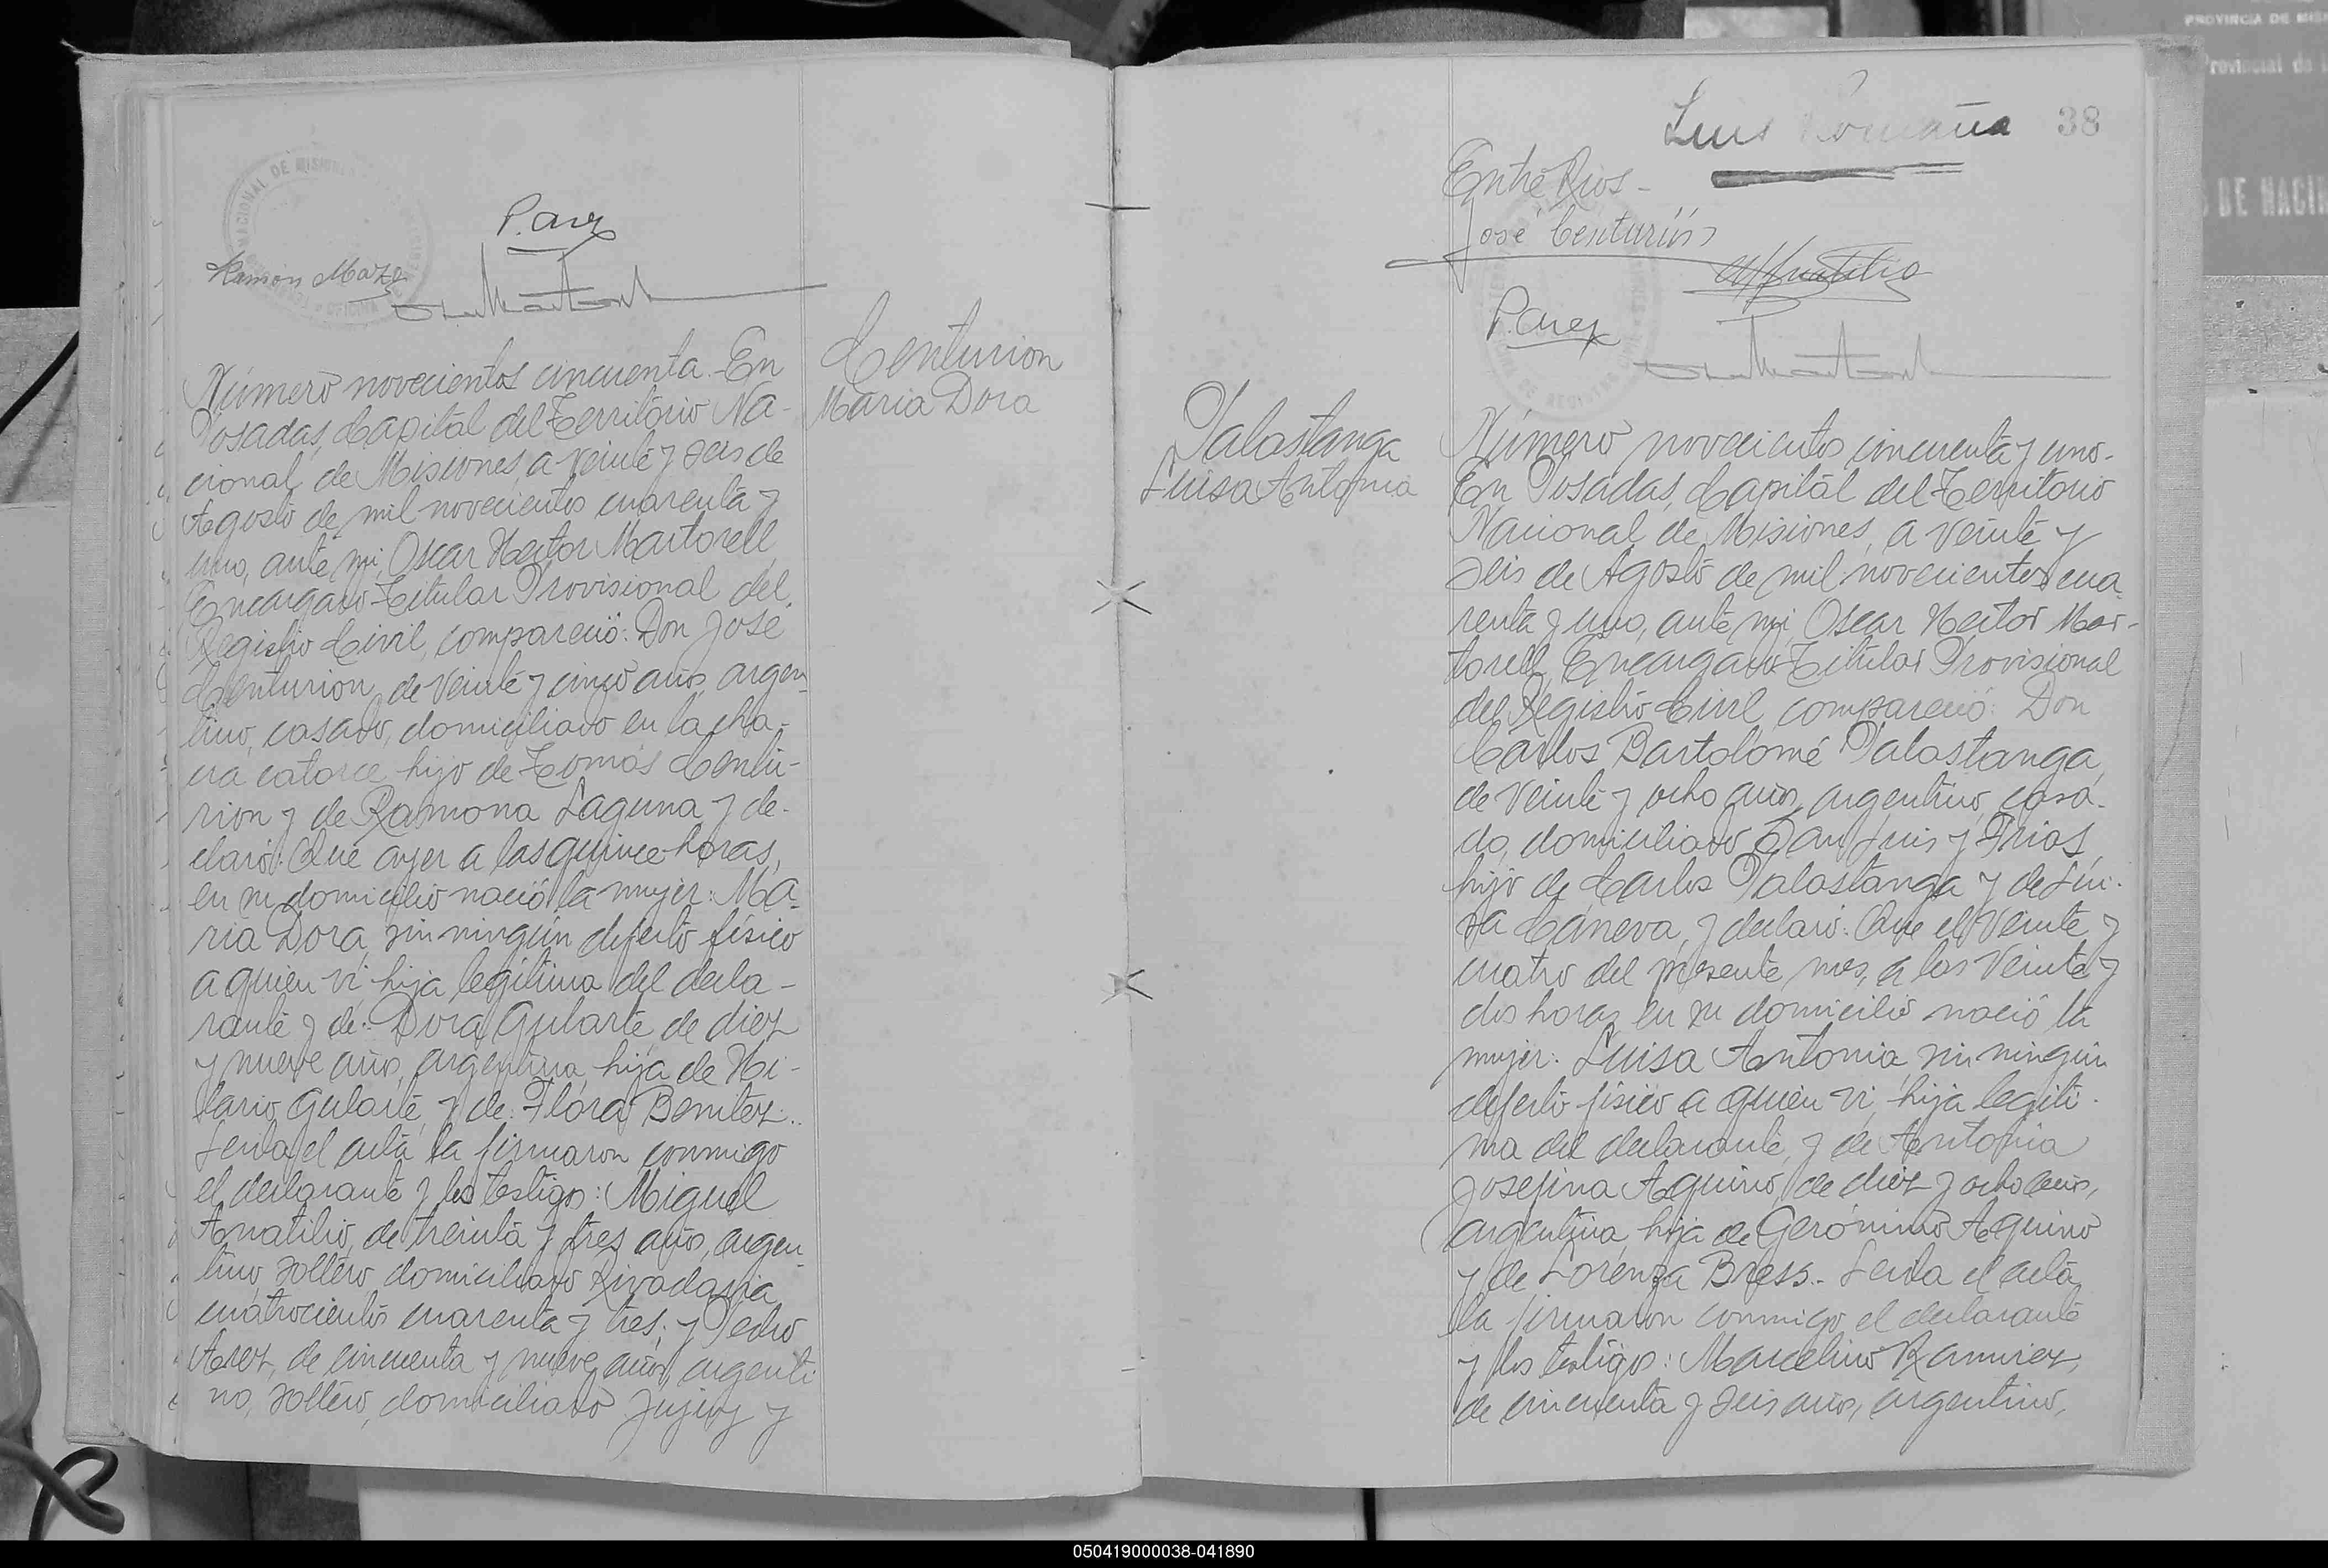 P. Arez
Ramón Maze
Centurion
Maria Dora
Número novecientos cincuenta. En
Posadas, Capital del Territorio Na-
cional de Misiones, a veinte y seis de
Agosto de mil novecientos cuarenta y
uno, ante mi, Oscar Hector Martorell,
Encargado Titular Provisional del
Registro Civil, compareció: Don José
Centurion, de veinte y cinco años, argen-
tino, casado, domiciliado en la cha-
cra catorce, hijo de Tomás Centu-
rion y de Ramona Laguna y de-
claró: Que ayer a las quince horas,
en su domicilio nació la mujer: Ma-
ria Dora, sin ningún defecto físico
a quien vi, hija legítima del decla-
rante y de: Dora Gularte, de diez
y nueve años, argentina, hija de Hi-
lario Gularte, y de: Flora Benitez..
Leida el acta la firmaron conmigo
el declarante y los testigos: Miguel
Amatilio, de treinta y tres años, argen-
tino, soltero, domiciliado Rivadavia
cuatrocientos cuarenta y tres; y Pedro
Arez, de cincuenta y nueve años, argenti-
no, soltero, domiciliado Jujuy y
Luis Romaña
38
Entre Rios-
José Centurión
P. Arez
Palastanga
Luisa Antonia
Número novecientos cincuenta y uno.
En Posadas, Capital del Territorio
Nacional de Misiones, a veinte y
seis de Agosto de mil novecientos cua
renta y uno, ante mi, Oscar Hector Mar-
torell, Encargado Titular Provisional
del Registro Civil, compareció: Don
Carlos Bartolomé Palastanga,
de veinte y ocho años, argentino, casa-
do, domiciliado San Luis y Frias,
hijo de Carlos Palastanga y de Lui-
sa Cáneva, y declaró: Que el veinte y
cuatro del presente mes, a las veinte y
dos horas, en su domicilio nació la
mujer: Luisa Antonia, sin ningún
defecto físico a quien vi, hija legiti-
ma del declarante, y de Antonia
Josefina Aquino, de diez y ocho años,
argentina, hija de Gerónimo Aquino
y de Lorenza Bress.- Leida el acta,
la firmaron conmigo el declarante
y los testigos: Marcelino Ramirez,
de cincuenta y seis años, argentino,
PROVINCIA DE MISI
Provincial de
DE NACI
050419000038-041890